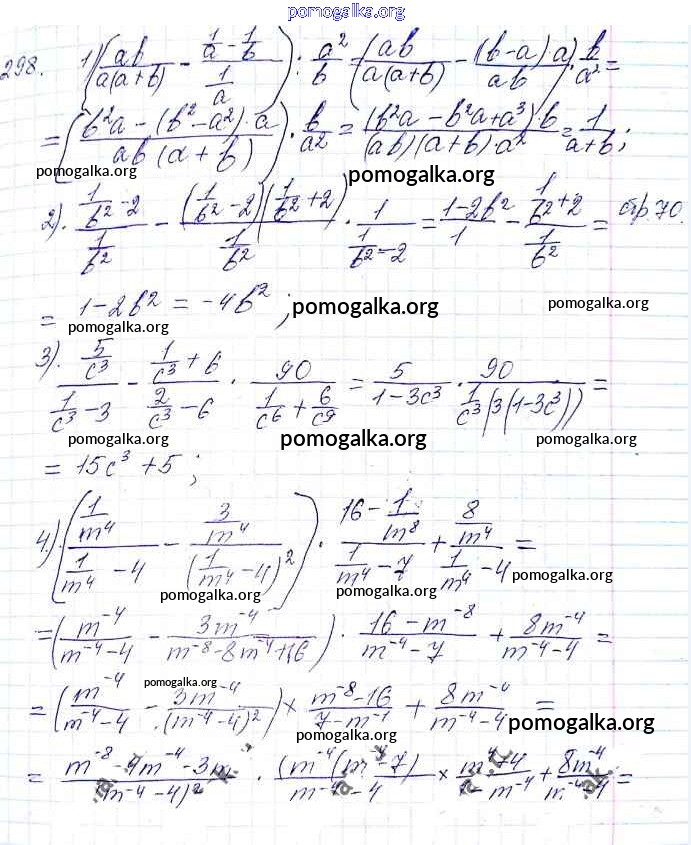 pomogalka.org
298. 1) (ab/(a(a+b)) - (1/a - 1/b)/(1/a)) : a²/b = (ab/(a(a+b)) - (b-a)·a/(ab)) · b/a² =
= (b²a - (b²-a²)·a)/(ab(a+b)) · b/a² = (b²a - b²a + a³)·b/((ab)(a+b)·a²) = 1/(a+b);
pomogalka.org pomogalka.org
2). (1/b² - 2)/(1/b²) - (1/b² - 2)(1/b² + 2)/(1/b²) · 1/(1/b² - 2) = (1-2b²)/1 - (1/b² + 2)/(1/b²) = стр. 70.
= 1-2b² = -4b²;
pomogalka.org pomogalka.org pomogalka.org
3). (5/c³)/(1/c³ - 3) - (1/c³ + 6)/(2/c³ - 6) · 90/(1/c⁶ + 6/c⁹) = 5/(1-3c³) · 90/(1/c³(3(1-3c³))) =
pomogalka.org pomogalka.org
= 15c³ + 5;
4.) ((1/m⁴)/(1/m⁴ - 4) - (3/m⁴)/(1/m⁴ - 4)²) · (16 - 1/m⁸)/(1/m⁴ - 7) + (8/m⁴)/(1/m⁴ - 4) =
pomogalka.org pomogalka.org pomogalka.org
= (m⁻⁴/(m⁻⁴-4) - 3m⁻⁴/(m⁻⁸-8m⁻⁴+16)) · (16-m⁻⁸)/(m⁻⁴-7) + 8m⁻⁴/(m⁻⁴-4) =
pomogalka.org
= (m⁻⁴/(m⁻⁴-4) - 3m⁻⁴/(m⁻⁴-4)²) × (m⁻⁸-16)/(7-m⁻¹) + 8m⁻⁴/(m⁻⁴-4) =
pomogalka.org
= (m⁻⁸-4m⁻⁴-3m)/(m⁻⁴-4)² · (m⁻⁴(m⁻⁴-7)/(m⁻⁴-4) × + 8m⁻⁴/ =